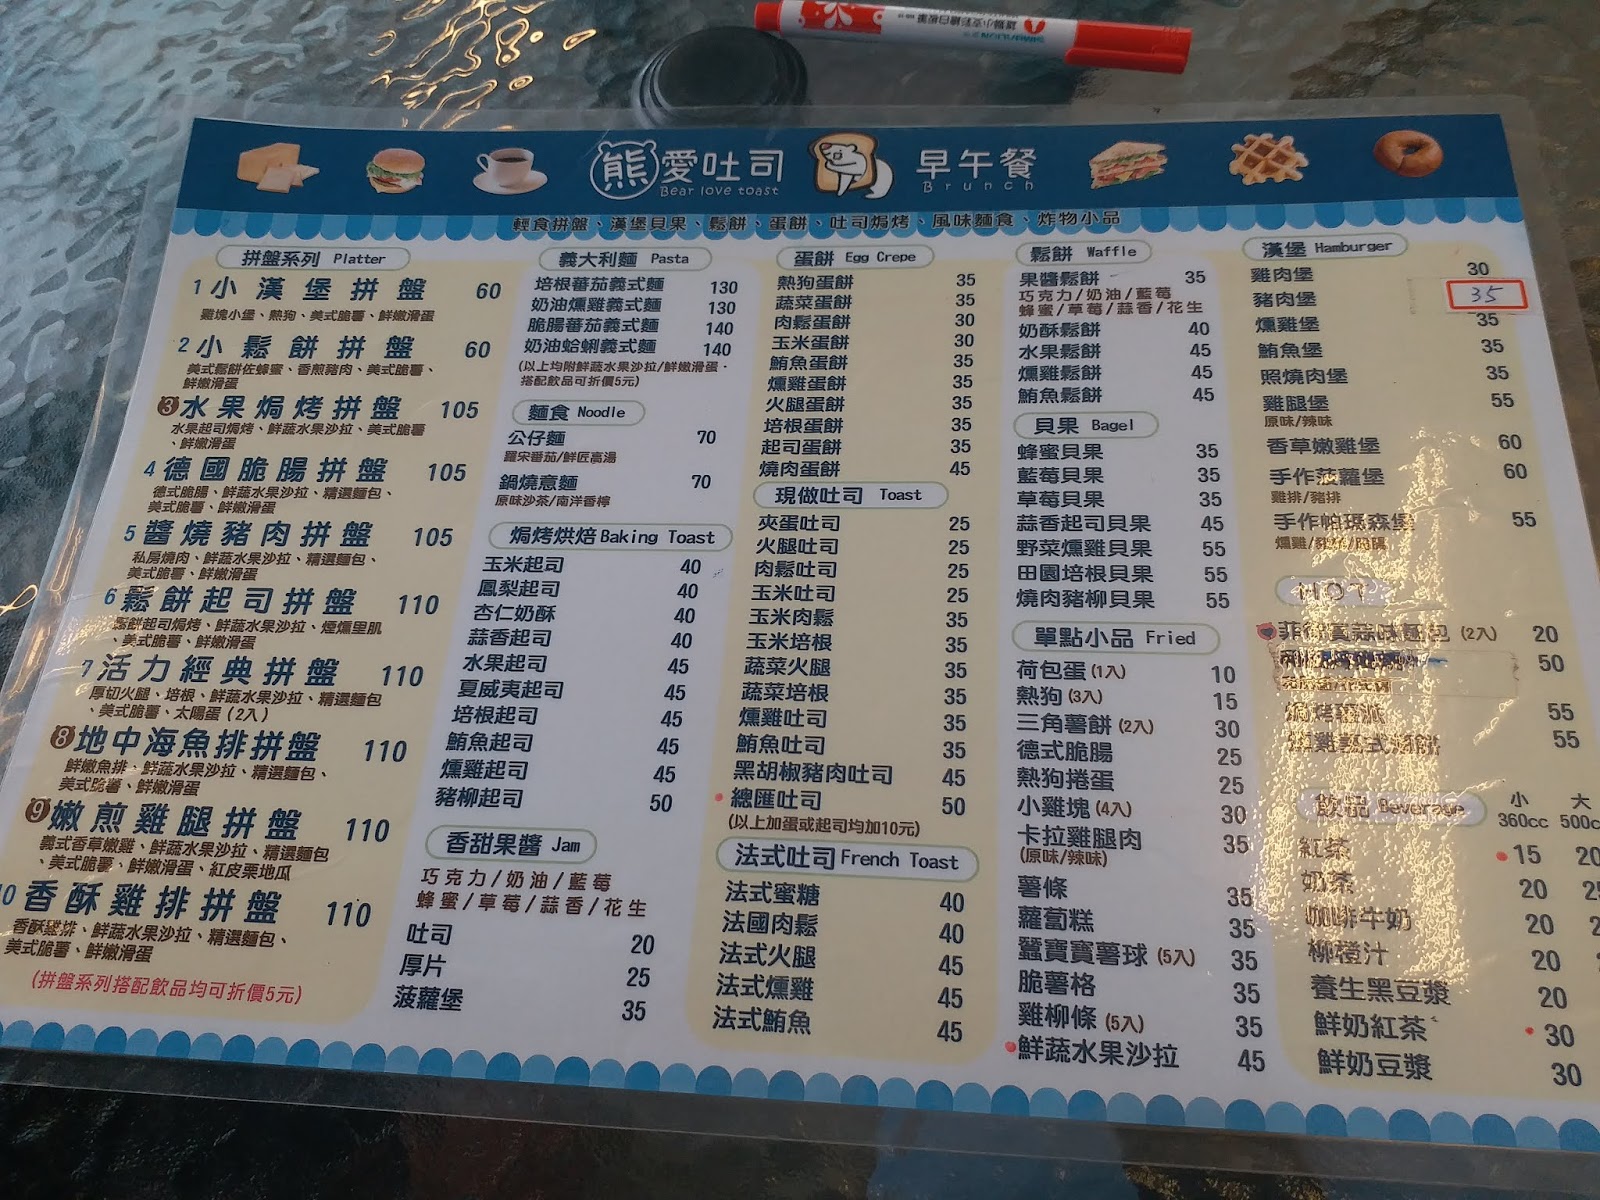 熊愛吐司
Bear love toast
早午餐
Brunch
輕食拼盤、漢堡貝果、鬆餅、蛋餅、吐司焗烤、風味麵食、炸物小品
拼盤系列 Platter
1 小漢堡拼盤 60
雞塊小堡、熱狗、美式脆薯、鮮嫩滑蛋
2 小鬆餅拼盤 60
美式鬆餅佐蜂蜜、香煎豬肉、美式脆薯、
鮮嫩滑蛋
3 水果焗烤拼盤 105
水果起司焗烤、鮮蔬水果沙拉、美式脆薯
、鮮嫩滑蛋
4 德國脆腸拼盤 105
德式脆腸、鮮蔬水果沙拉、精選麵包、
美式脆薯、鮮嫩滑蛋
5 醬燒豬肉拼盤 105
私房燒肉、鮮蔬水果沙拉、精選麵包、
美式脆薯、鮮嫩滑蛋
6 鬆餅起司拼盤 110
鬆餅起司焗烤、鮮蔬水果沙拉、煙燻里肌
、美式脆薯、鮮嫩滑蛋
7 活力經典拼盤 110
厚切火腿、培根、鮮蔬水果沙拉、精選麵包
、美式脆薯、太陽蛋(2入)
8 地中海魚排拼盤 110
鮮嫩魚排、鮮蔬水果沙拉、精選麵包、
美式脆薯、鮮嫩滑蛋
9 嫩煎雞腿拼盤 110
義式香草嫩雞、鮮蔬水果沙拉、精選麵包
、美式脆薯、鮮嫩滑蛋、紅皮栗地瓜
10 香酥雞排拼盤 110
香酥雞排、鮮蔬水果沙拉、精選麵包、
美式脆薯、鮮嫩滑蛋
(拼盤系列搭配飲品均可折價5元)
義大利麵 Pasta
培根蕃茄義式麵 130
奶油燻雞義式麵 130
脆腸蕃茄義式麵 140
奶油蛤蜊義式麵 140
(以上均附鮮蔬水果沙拉/鮮嫩滑蛋．
搭配飲品可折價5元)
麵食 Noodle
公仔麵 70
羅宋蕃茄/鮮匠高湯
鍋燒意麵 70
原味沙茶/南洋香檸
焗烤烘焙 Baking Toast
玉米起司 40
鳳梨起司 40
杏仁奶酥 40
蒜香起司 40
水果起司 45
夏威夷起司 45
培根起司 45
鮪魚起司 45
燻雞起司 45
豬柳起司 50
香甜果醬 Jam
巧克力/奶油/藍莓
蜂蜜/草莓/蒜香/花生
吐司 20
厚片 25
菠蘿堡 35
蛋餅 Egg Crepe
熱狗蛋餅 35
蔬菜蛋餅 35
肉鬆蛋餅 30
玉米蛋餅 30
鮪魚蛋餅 35
燻雞蛋餅 35
火腿蛋餅 35
培根蛋餅 35
起司蛋餅 35
燒肉蛋餅 45
現做吐司 Toast
夾蛋吐司 25
火腿吐司 25
肉鬆吐司 25
玉米吐司 25
玉米肉鬆 35
玉米培根 35
蔬菜火腿 35
蔬菜培根 35
燻雞吐司 35
鮪魚吐司 35
黑胡椒豬肉吐司 45
總匯吐司 50
(以上加蛋或起司均加10元)
法式吐司 French Toast
法式蜜糖 40
法國肉鬆 40
法式火腿 45
法式燻雞 45
法式鮪魚 45
鬆餅 Waffle
果醬鬆餅 35
巧克力/奶油/藍莓
蜂蜜/草莓/蒜香/花生
奶酥鬆餅 40
水果鬆餅 45
燻雞鬆餅 45
鮪魚鬆餅 45
貝果 Bagel
蜂蜜貝果 35
藍莓貝果 35
草莓貝果 35
蒜香起司貝果 45
野菜燻雞貝果 55
田園培根貝果 55
燒肉豬柳貝果 55
單點小品 Fried
荷包蛋(1入) 10
熱狗(3入) 15
三角薯餅(2入) 30
德式脆腸 25
熱狗捲蛋 25
小雞塊(4入) 30
卡拉雞腿肉 35
(原味/辣味)
薯條 35
蘿蔔糕 35
蠶寶寶薯球(5入) 35
脆薯格 35
雞柳條(5入) 35
鮮蔬水果沙拉 45
漢堡 Hamburger
雞肉堡 30
豬肉堡 35
燻雞堡 35
鮪魚堡 35
照燒肉堡 35
雞腿堡 55
原味/辣味
香草嫩雞堡 60
手作菠蘿堡 60
雞排/豬排
手作帕瑪森堡 55
HOT
菲 蒜味麵包(2入) 20
50
焗烤 55
55
飲品 Beverage 小 大
360cc 500c
紅茶 15 20
奶茶 20
咖啡牛奶 20
柳橙汁 20
養生黑豆漿 20
鮮奶紅茶 30
鮮奶豆漿 30